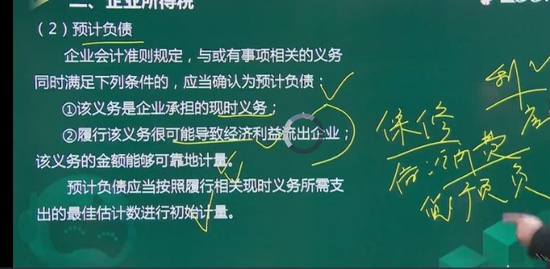 二、企业所得税
（2）预计负债
企业会计准则规定，与或有事项相关的义务
同时满足下列条件的，应当确认为预计负债：
①该义务是企业承担的现时义务；
②履行该义务很可能导致经济利益流出企业；
该义务的金额能够可靠地计量。
预计负债应当按照履行相关现时义务所需支
出的最佳估计数进行初始计量。
保修